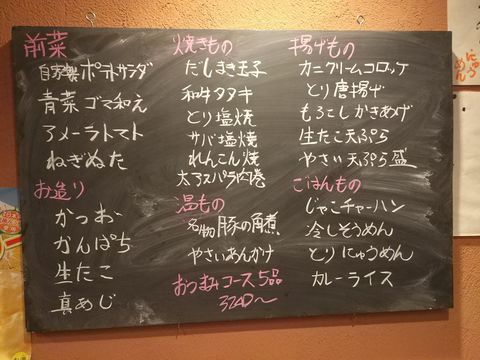 前菜
自家製ポテトサラダ
青菜ゴマ和え
アメーラトマト
ねぎぬた
お造り
かつお
かんぱち
生たこ
真あじ
焼きもの
だしまき玉子
和牛タタキ
とり塩焼
サバ塩焼
れんこん焼
太アスパラ肉巻
温もの
名物豚の角煮
やさいあんかけ
おつまみコース5品
揚げもの
カニクリームコロッケ
とり唐揚げ
もろこしかきあげ
生たこ天ぷら
やさい天ぷら盛
ごはんもの
じゃこチャーハン
冷しそうめん
とりにゅうめん
カレーライス